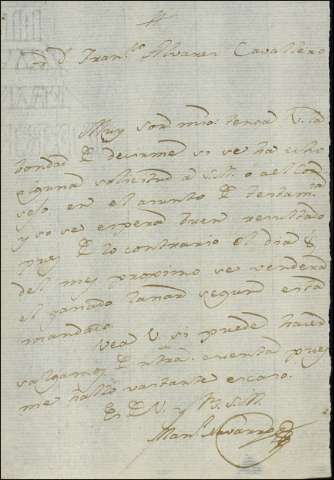 Sr D Franco Alvarez Cavallero
Muy Sor mio: tenga V. la
bondad de decirme si se ha echo
alguna solicitud a S. M. o al Con
sejo en el asunto de testam.
y si se espera buen resultado
pues de lo contrario el dia 8
del mes proximo se vendera
el ganado lanar segun esta
mandado.
Vea V. si puede hacer
salgamos de ntra. cuenta pues
me hallo vastante escaso.
Es de V. y B. S. M.
Manl Navarro